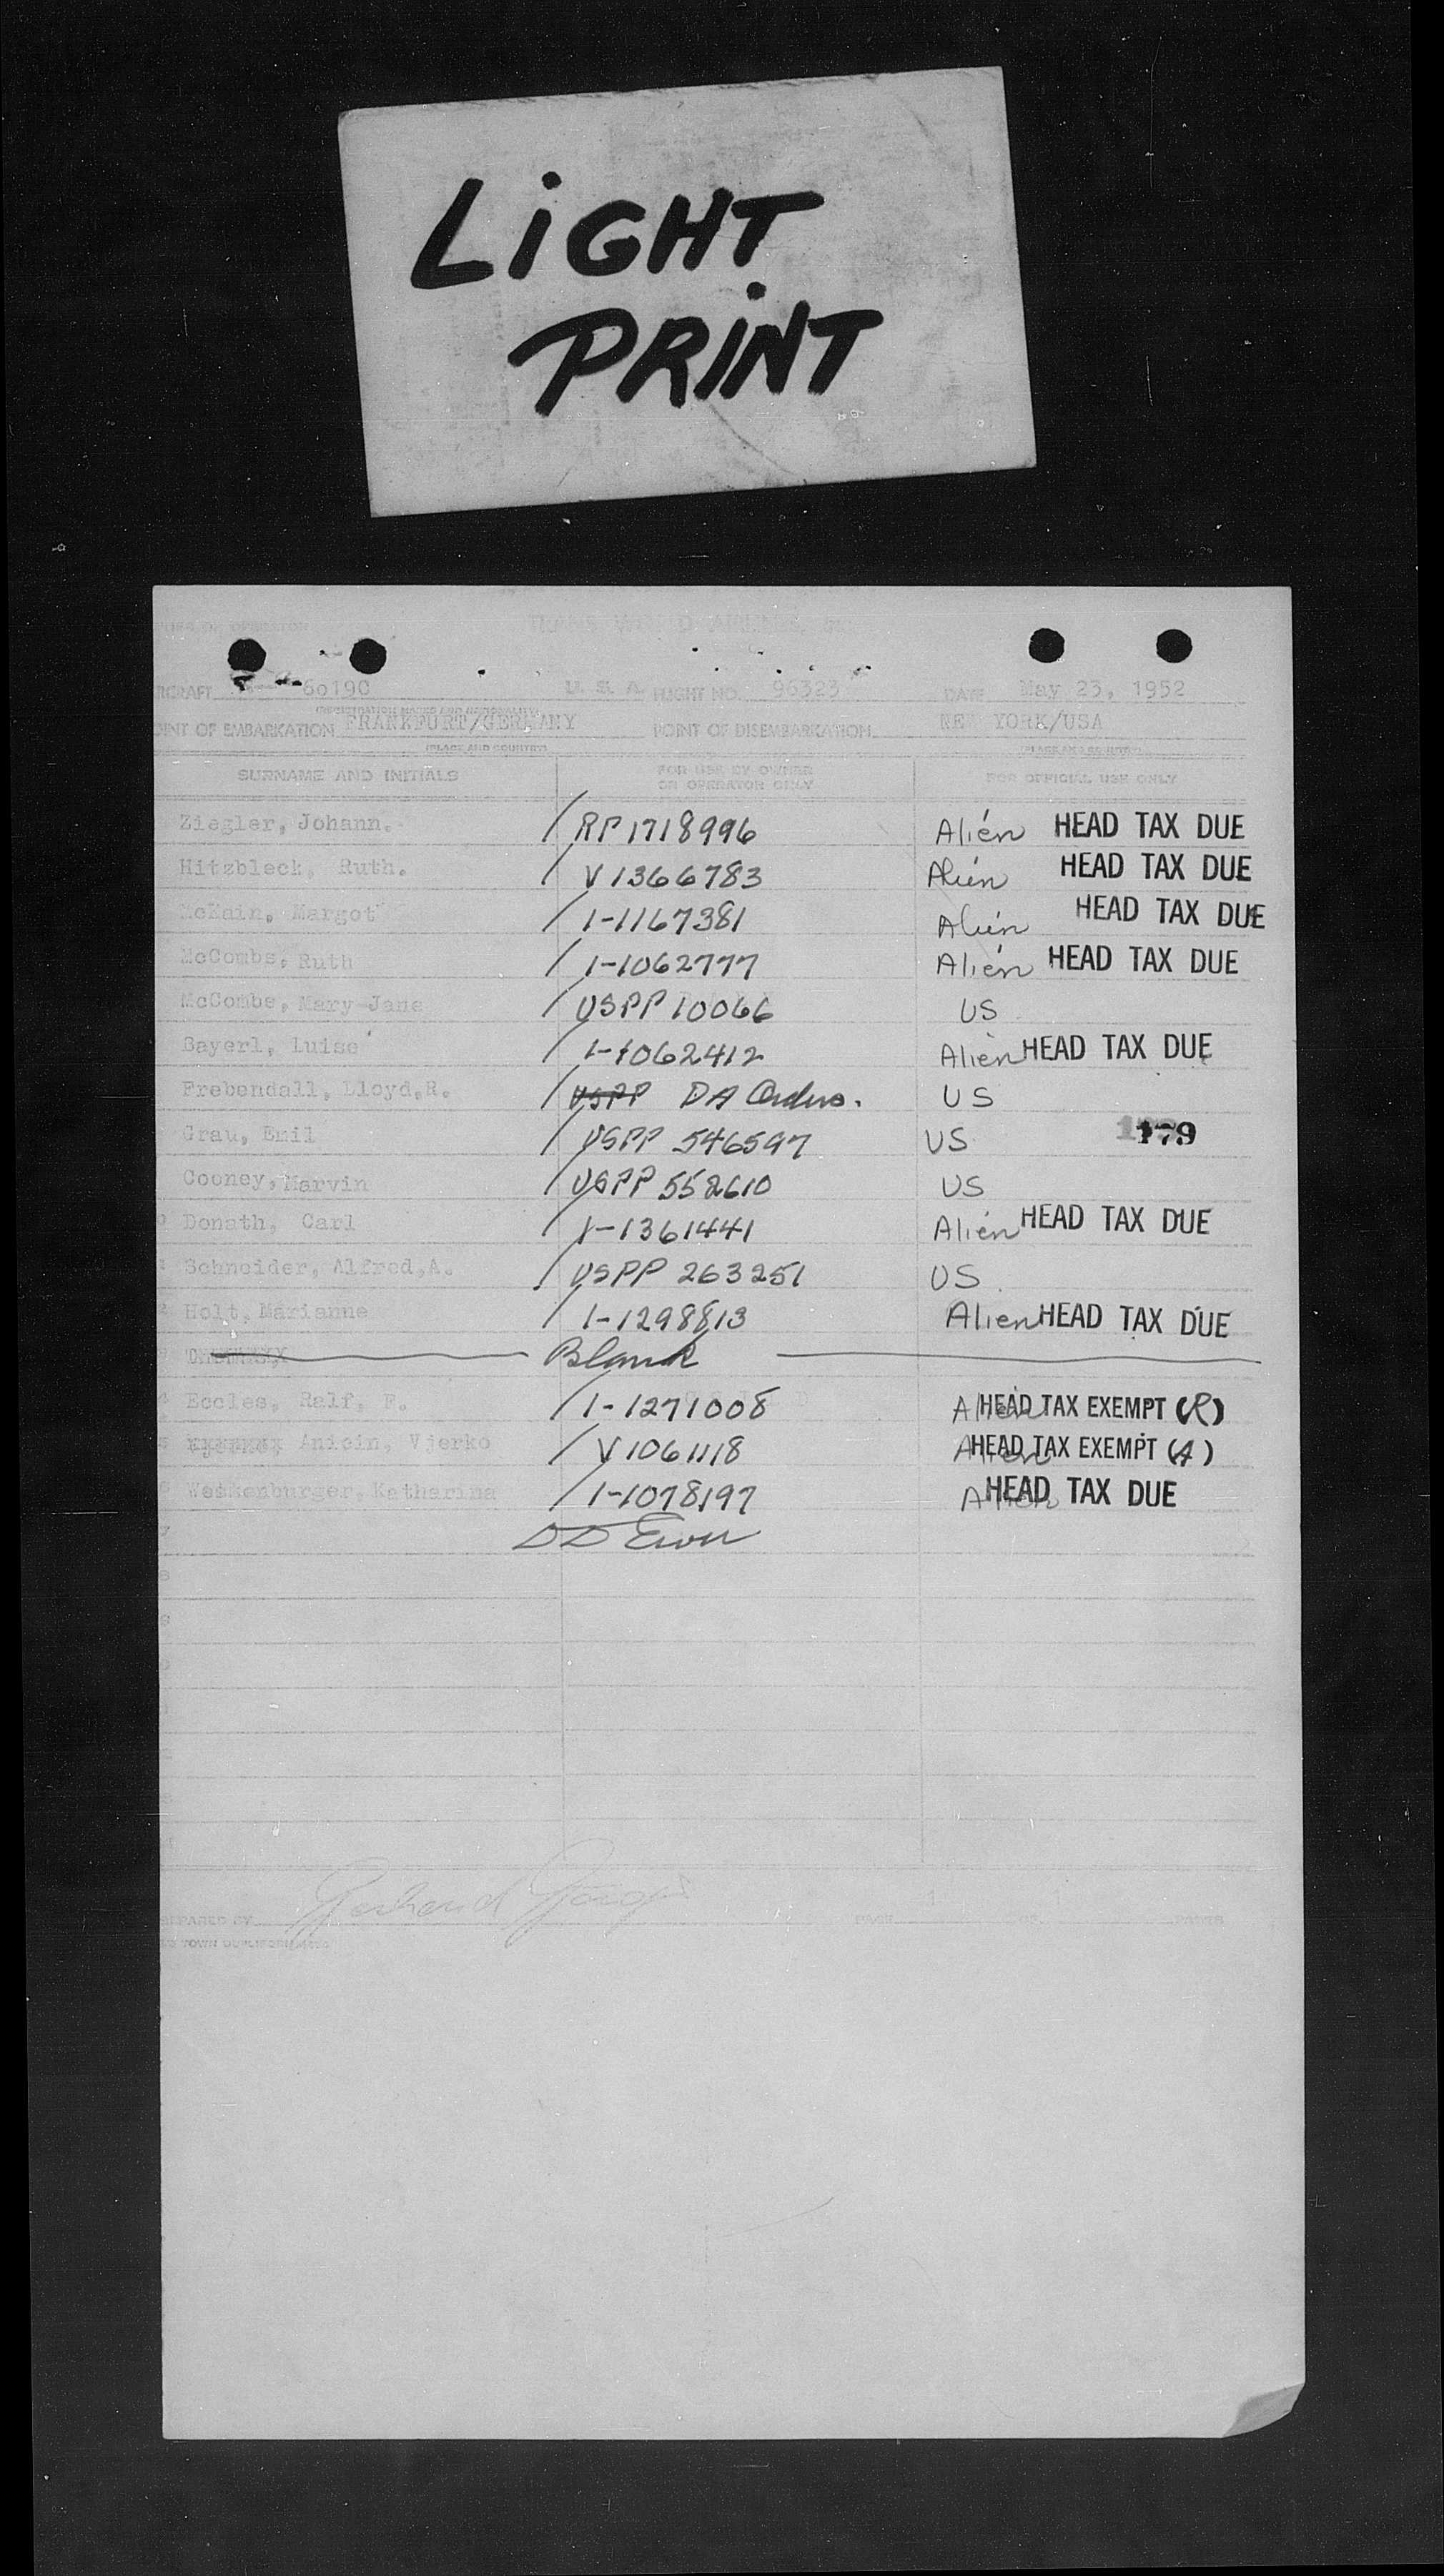 LIGHT
PRINT
TRANS WORLD AIRLINES, INC.
AIRCRAFT 60190 U. S. A. FLIGHT NO. 96323 DATE May 23, 1952
(REGISTRATION MARKS AND NATIONALITY)
POINT OF EMBARKATION FRANKFURT/GERMANY POINT OF DISEMBARKATION NEW YORK/USA
(PLACE AND COUNTRY) (PLACE AND COUNTRY)
SURNAME AND INITIALS FOR USE BY OWNER OR OPERATOR ONLY FOR OFFICIAL USE ONLY
Ziegler, Johann. / RP 1718996 Alien HEAD TAX DUE
Hitzbleck, Ruth. / V 1366783 Alien HEAD TAX DUE
McKain, Margot / 1-1167381 Alien HEAD TAX DUE
McCombs, Ruth / 1-1062777 Alien HEAD TAX DUE
McCombs, Mary Jane / USPP 10066 US
Bayerl, Luise / 1-1062412 Alien HEAD TAX DUE
Frebendall, Lloyd,R. / USPP DA Orders. US
Grau, Emil / USPP 546597 US 179
Cooney, Marvin / USPP 552610 US
Donath, Carl / 1-1361441 Alien HEAD TAX DUE
Schneider, Alfred,A. / USPP 263251 US
Holt, Marianne / 1-1298813 Alien HEAD TAX DUE
Blank
Eccles, Ralf, F. / 1-1271008 Alien HEAD TAX EXEMPT (R)
Anicin, Vjerko / V 1061118 Alien HEAD TAX EXEMPT (A)
Katharina / 1-1078197 Alien HEAD TAX DUE
PREPARED BY Gerhard PAGE 1 OF 1 PAGES